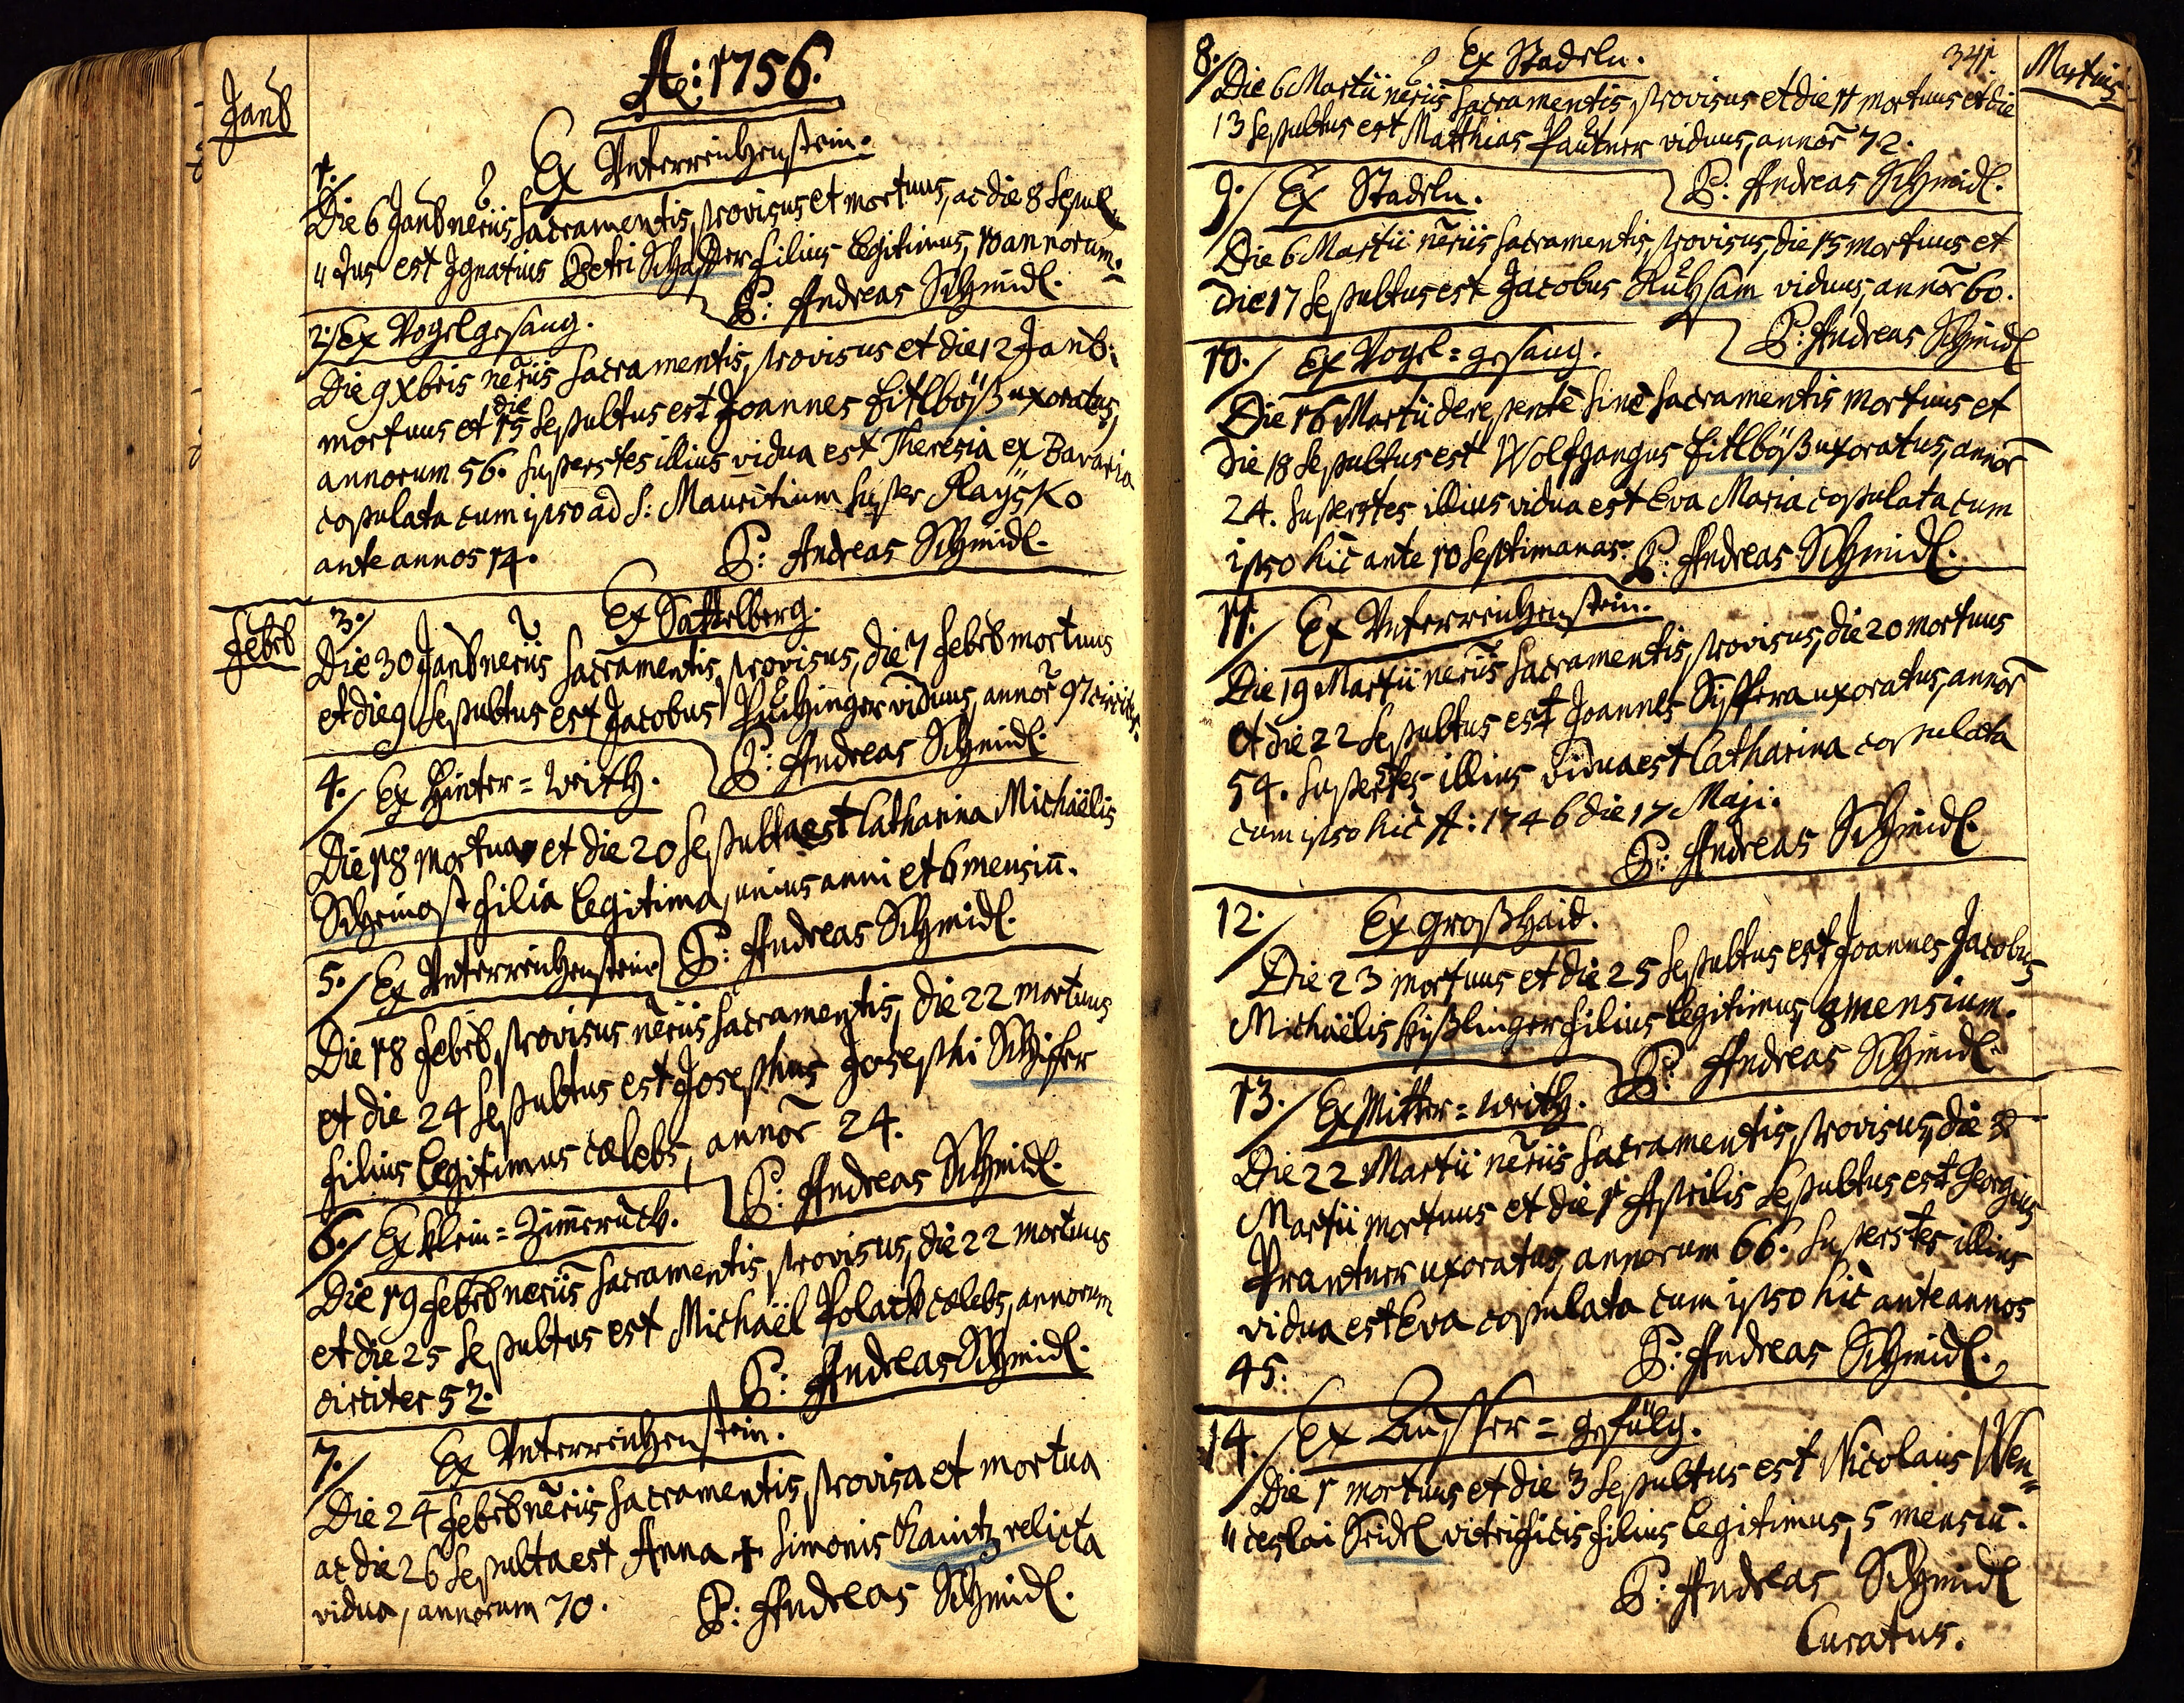 A: 1756.
Janũ
Ex Unterreichenstein.
1./
Die 6 Janũ neriis Sacramentis provisus et mortuus, ac die 8 Sepul
"tus est Ignatius Petri filius legitimus, 10 annorum.
P: Andreas Schmidl.
2./ Ex Vogelgesang.
Die 9 Xbris nẽriis Sacramentis provisus et die 12 Janũ:
mortuus et die 15 Sepultus est Joannes Eitlböß uxoratus,
annorum 56. Superstes illius vidua est Theresia ex Bavaria
copulata cum ipso ad S: Mauritium super Raysko
ante annos 14. P: Andreas Schmidl.
Febrũ
3./ Ex Sattelberg.
Die 30 Janũ neriis Sacramentis provisus, die 7 Febrũ mortuus
et die 9 Sepultus est Jacobus Puchinger viduus, annor̃ 97 circiter.
P: Andreas Schmidl.
4./ Ex Hinter=Writh.
Die 18 mortua et die 20 Sepulta est Catharina Michaëlis
Scheinost filia legitima, unius anni et 6 mensiũ.
P: Andreas Schmidl.
5./ Ex Unterreichenstein
Die 18 Febrũ provisus nẽriis Sacramentis, die 22 mortuus
et die 24 Sepultus est Josephus Josephi Schiffer
filius legitimus cælebs, annor̃ 24.
P: Andreas Schmidl.
6./ Ex Klein=Zim̃erũch.
Die 19 Febrũ neriis Sacramentis provisus, die 22 mortuus
et die 25 Sepultus est Michaël Polack cælebs, annorum
circiter 52. P: Andreas Schmidl.
7./ Ex Unterreichenstein.
Die 24 Febrũ nẽriis Sacramentis provisa et mortua
ac die 26 Sepulta est Anna + Simonis relicta
vidua, annorum 70. P: Andreas Schmidl.
341.
Martius
8./ Ex Stadeln.
Die 6 Martii neriis Sacramentis provisus et die 11 mortuus et die
13 Sepultus est Matthias Pautner viduus, annor̃ 72.
P: Andreas Schmidl.
9./ Ex Stadeln.
Die 6 Martii nẽriis Sacramentis provisus, die 15 mortuus et
die 17 Sepultus est Jacobus Ruhsam viduus, annor̃ 60.
P: Andreas Schmidl
10./ Ex Vogel=gesang.
Die 16 Martii derepentè sinè Sacramentis mortuus et
die 18 Sepultus est Wolfgangus Eitlböß uxoratus, annor̃
24. Superstes illius vidua est Eva Maria copulata cum
ipso hìc ante 10 Septimanas. P: Andreas Schmidl.
11./ Ex Unterreichenstein.
Die 19 Martii nẽriis Sacramentis provisus, die 20 mortuus
et die 22 Sepultus est Joannes uxoratus, annor̃
54. Superstes illius vidua est Catharina copulata
cum ipso hìc A: 1746 die 17 Maji.
P: Andreas Schmidl.
12./ Ex Großhaid.
Die 23 mortuus et die 25 Sepultus est Joannes Jacobus
Michaëlis Kißlinger filius legitimus, mensium.
P: Andreas Schmidl.
13./ Ex Mitter=Writh.
Die 22 Martii nẽriis Sacramentis provisus, die
Martii mortuus et die 1 Aprilis Sepultus est Georgius
Prantner uxoratus, annorum 66. Superstes illius
vidua est Eva copulata cum ipso hìc ante annos
45. P: Andreas Schmidl.
14./ Ex Ausser=gefülg.
Die 1 mortuus et die 3 Sepultus est Nicolaus Wen=
"ceslai Seidel vitrificis filius legitimus, 5 mensiũ.
P: Andreas Schmidl
Curatus.